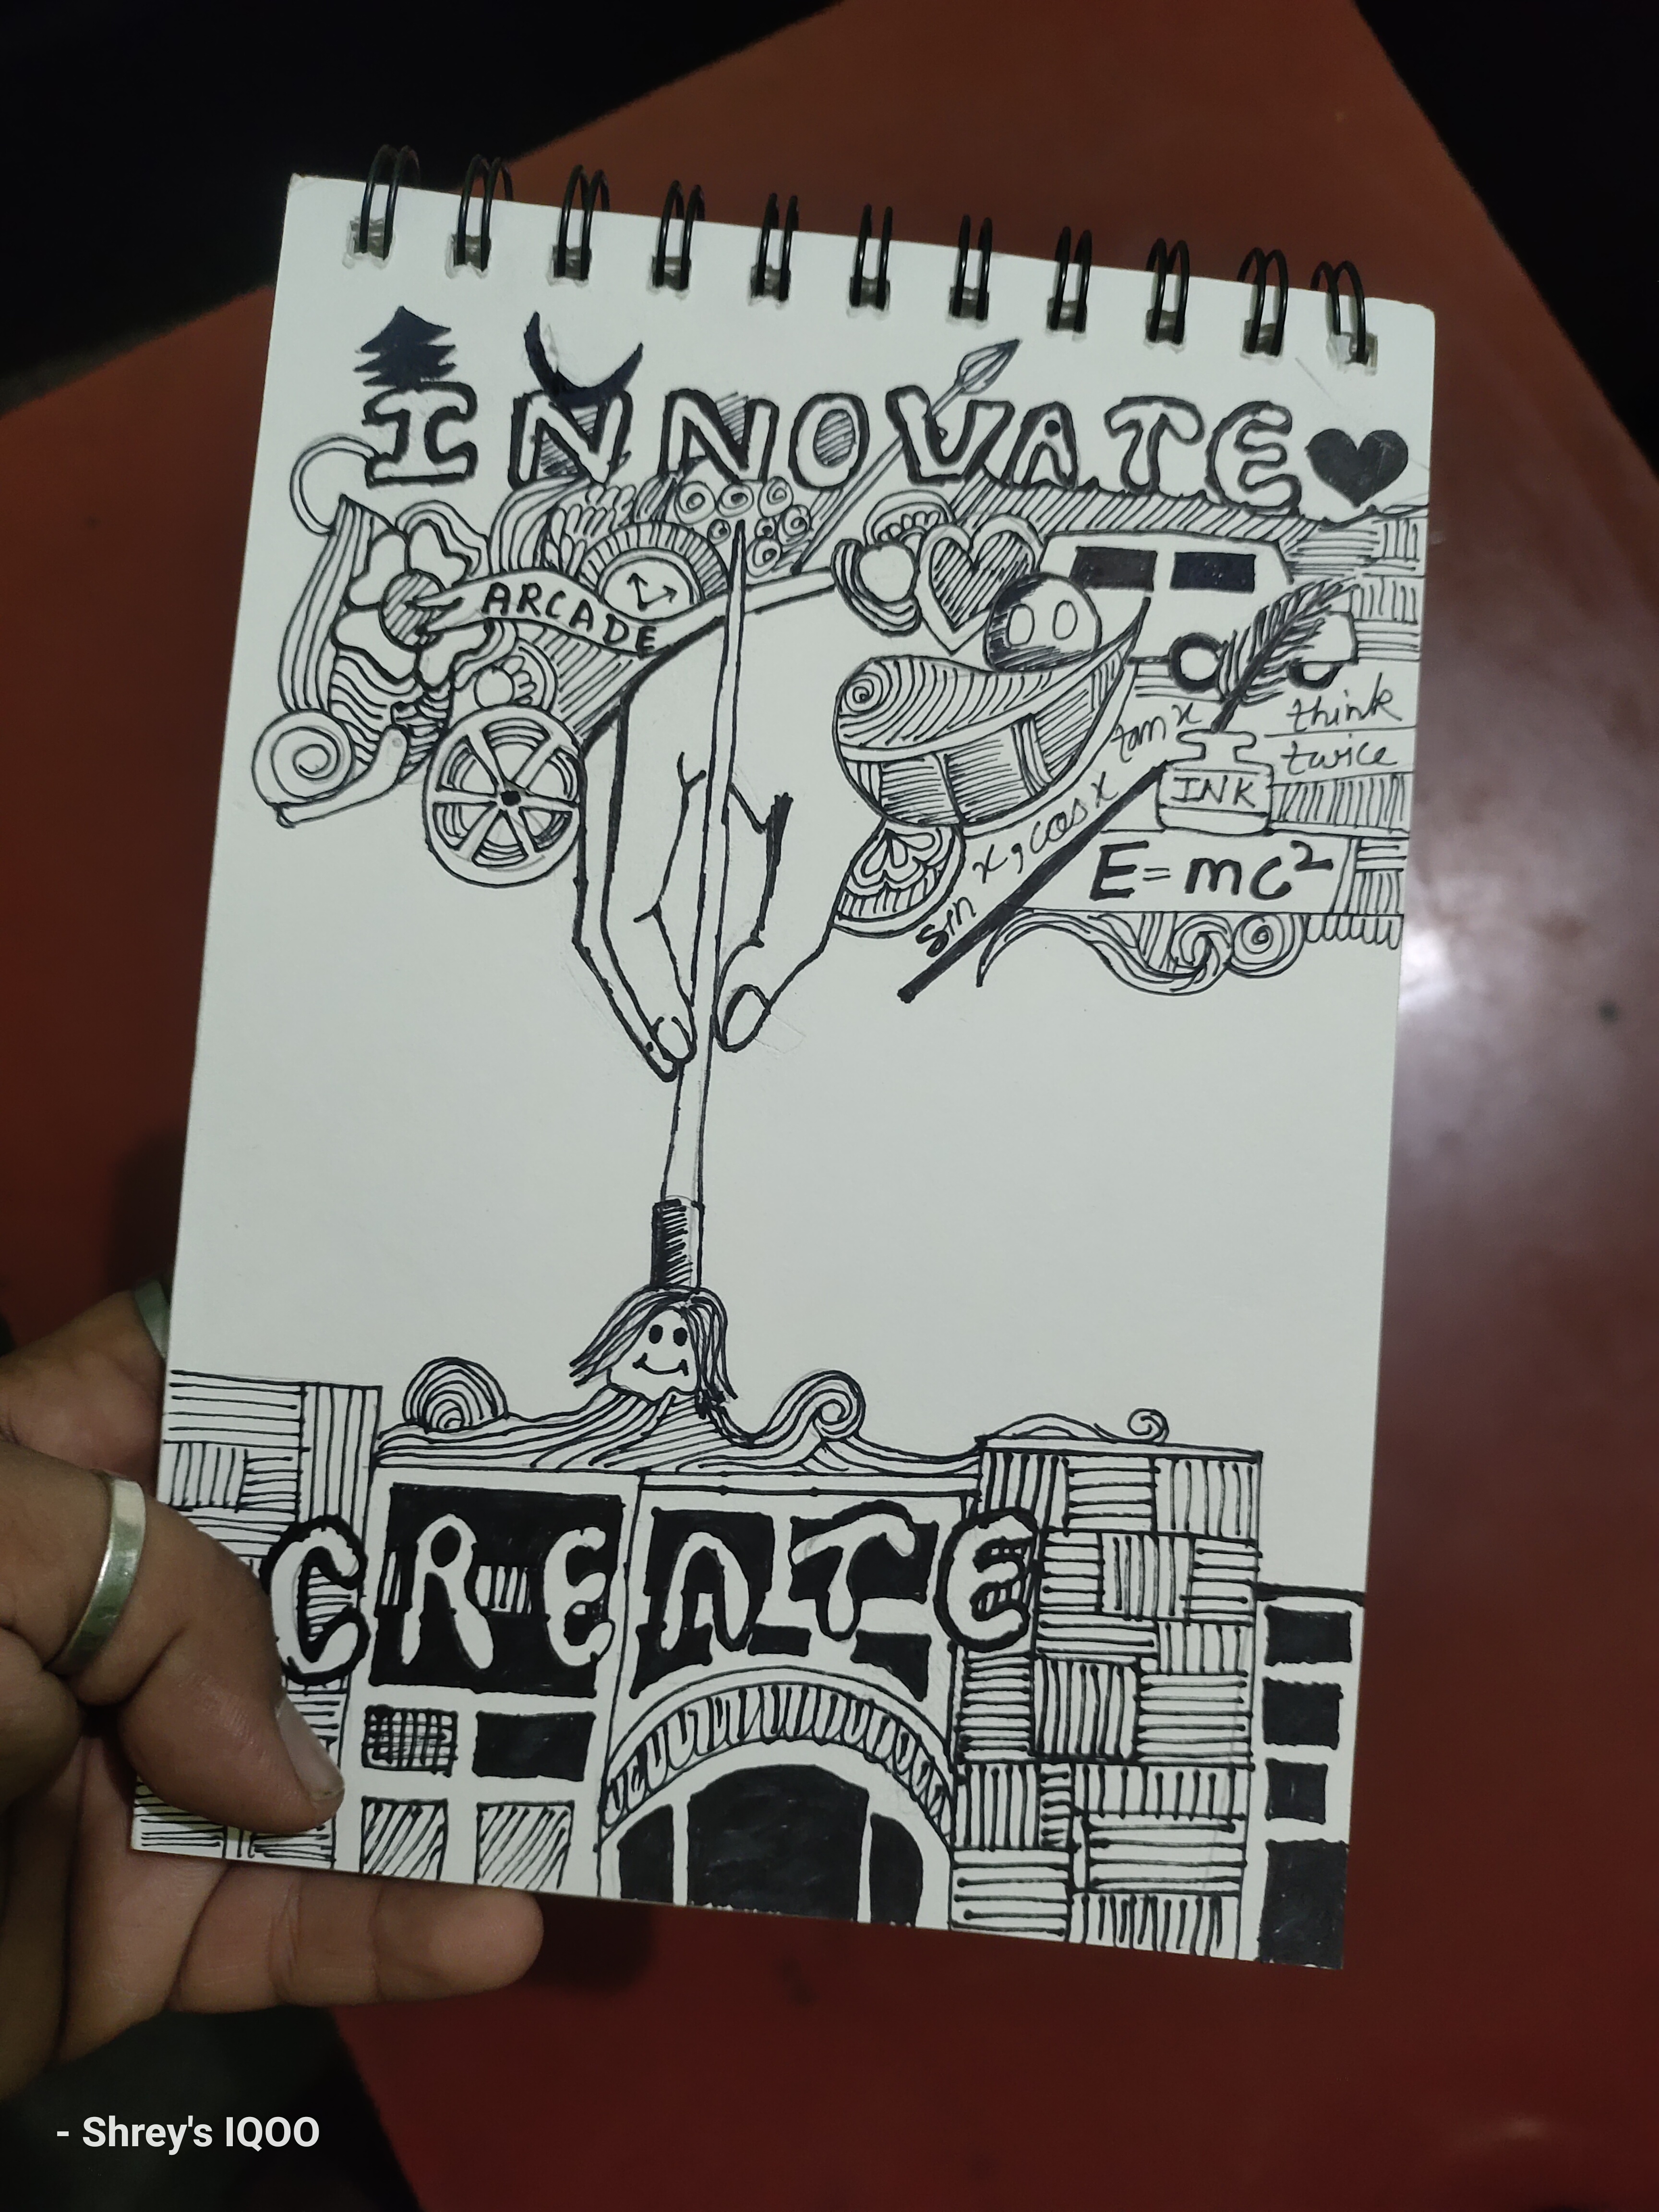 INNOVATE
ARCADE
think
twice
tan x
INK
sin x, cos x
E=mc²
CREATE
- Shrey's IQOO